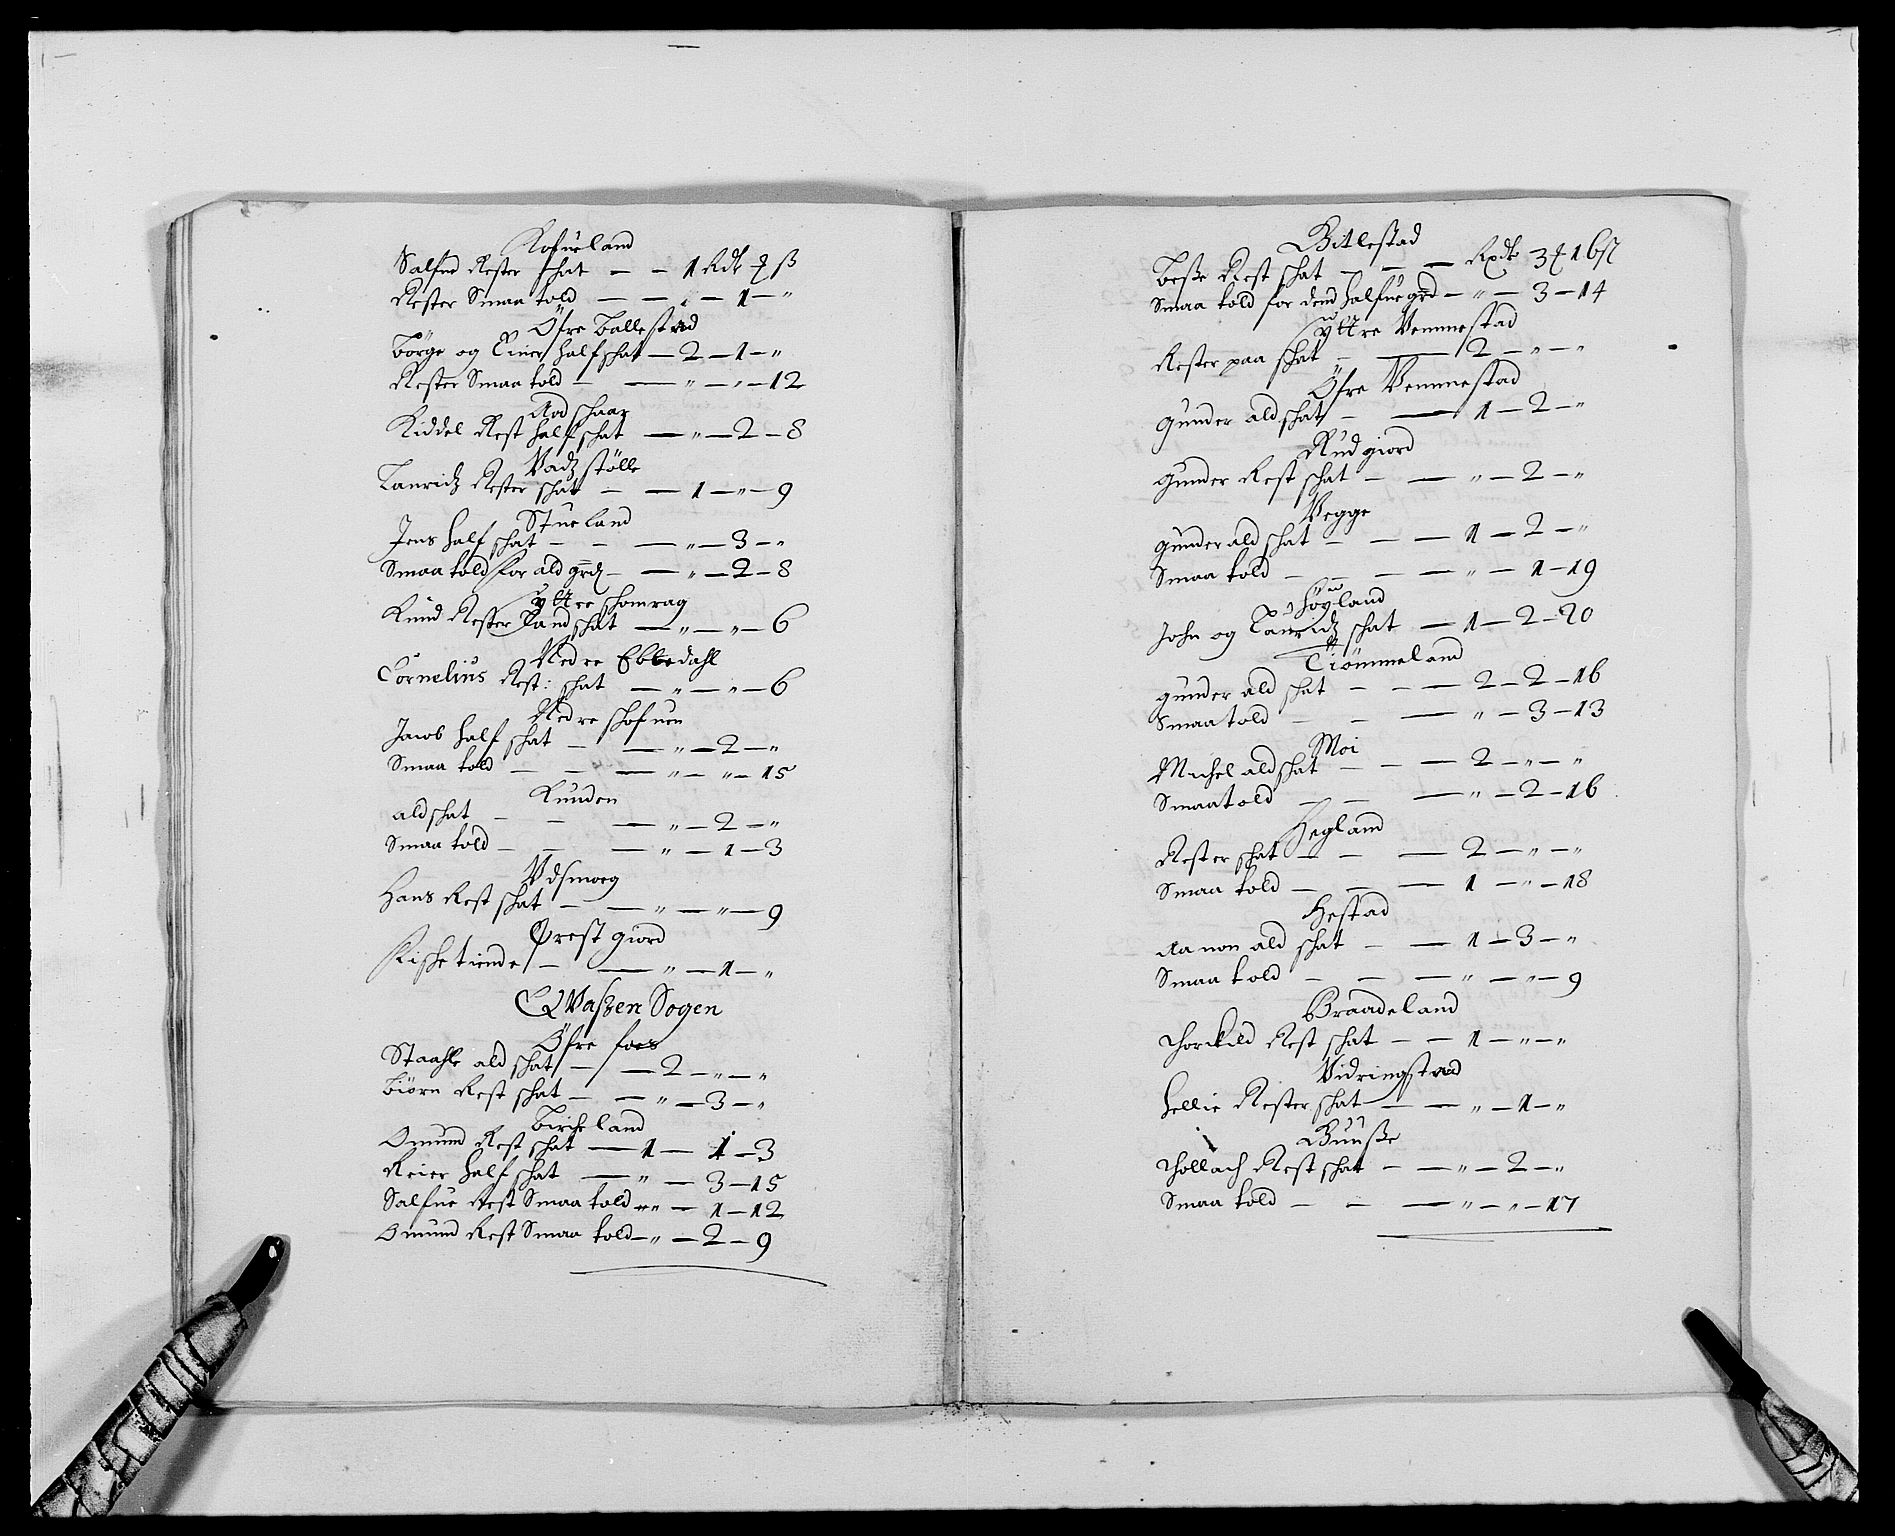 Kofueland
Salfue Rester schat — — 1 Rdr ꝫ ß
Rester Smaa told — — „ — 1 — „
Öfre Ballestad
Börge og Einer half schat — 2 — 1 — „
Rester Smaa told — — „ — „ — 12
Aadschaar
Kiddel Rest half schat — „ — 2 — 8
Vadz stölle
Lauridz Rester schat — — 1 — „ — 9
Stueland
Jens half schat — — — „ — 3 — „
Smaa told for ald grd — — „ — 2 — 8
yttre schomrag
Knud Rester Land schat — „ — „ — 6
Nedre Ebbedahl
Cornelius Rest: schat — „ — „ — 6
Nedre schofuen
Jacob half schat — — „ — 2 — „
Smaa told — — — „ — „ — 15
Kunden
ald schat — — — „ — 2 — „
Smaa told — — — „ — 1 — 3
Vdsmoeg
Hans Rest schat — — „ — „ — 9
Prest giord
Kischetiende — — „ — 1 — „
QVaßen Sogen
Öfre foes
Staahle ald schat — — 2 — „ — „
Biörn Rest schat — — „ — 3 — „
Bircheland
Omund Rest schat — 1 — 1 — 3
Reier half schat — „ — 3 — 15
Salfue Rest Smaa told — „ — 1 — 12
Omund Rest Smaa told — „ — 2 — 9
Bitlestad
Beße Rest schat — — — Rxdr 3 ꝫ 16 ß
Smaa told for dend halfue grd — „ — 3 — 14
yttre Vemmestad
Rester paa schat — — 2 — „ — „
Öfre Vemmestad
Gunder ald schat — — 1 — 2 — „
Rud giord
Gunder Rest schat — — „ — 2 — „
Vegge
Gunder ald schat — — — 1 — 2 — „
Smaa told — — — — „ — 1 — 19
Höyland
John og Lauridz schat — 1 — 2 — 20
Tiömmeland
Gunder ald schat — — — 2 — 2 — 16
Smaa told — — — „ — 3 — 13
Moi
Michel ald schat — — — 2 — „ — „
Smaa told — — — „ — 2 — 16
Hegland
Rester schat — — — 2 — „ — „
Smaa told — — — 1 — „ — 18
Hestad
Aanon ald schat — — 1 — 3 — „
Smaa told — — — „ — „ — 9
Braadeland
Thorkild Rest schat — — 1 — „ — „
Vidringstad
Hellie Rester schat — — „ — 1 — „
Buuße
Thollach Rest schat — — „ — 2 — „
Smaa told — — — „ — „ — 17